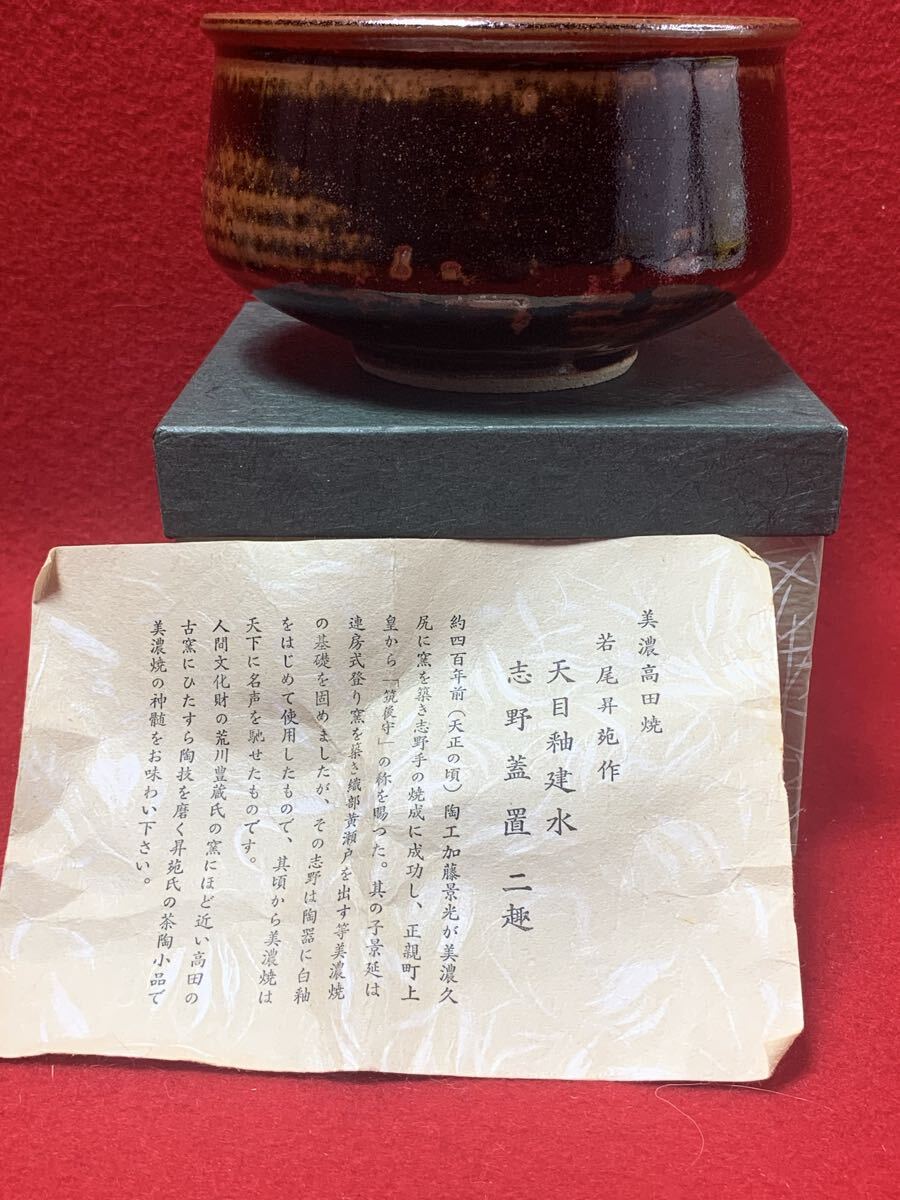 美濃高田焼
若尾昇苑作
天目釉建水
志野蓋置二趣
約四百年前（天正の頃）陶工加藤景光が美濃久
尻に窯を築き志野手の焼成に成功し、正親町上
皇から「筑後守」の称を賜つた。其の子景延は
連房式登り窯を築き織部黄瀬戸を出す等美濃焼
の基礎を固めましたが、その志野は陶器に白釉
をはじめて使用したもので、其頃から美濃焼は
天下に名声を馳せたものです。
人間文化財の荒川豊蔵氏の窯にほど近い高田の
古窯にひたすら陶技を磨く昇苑氏の茶陶小品で
美濃焼の神髄をお味わい下さい。